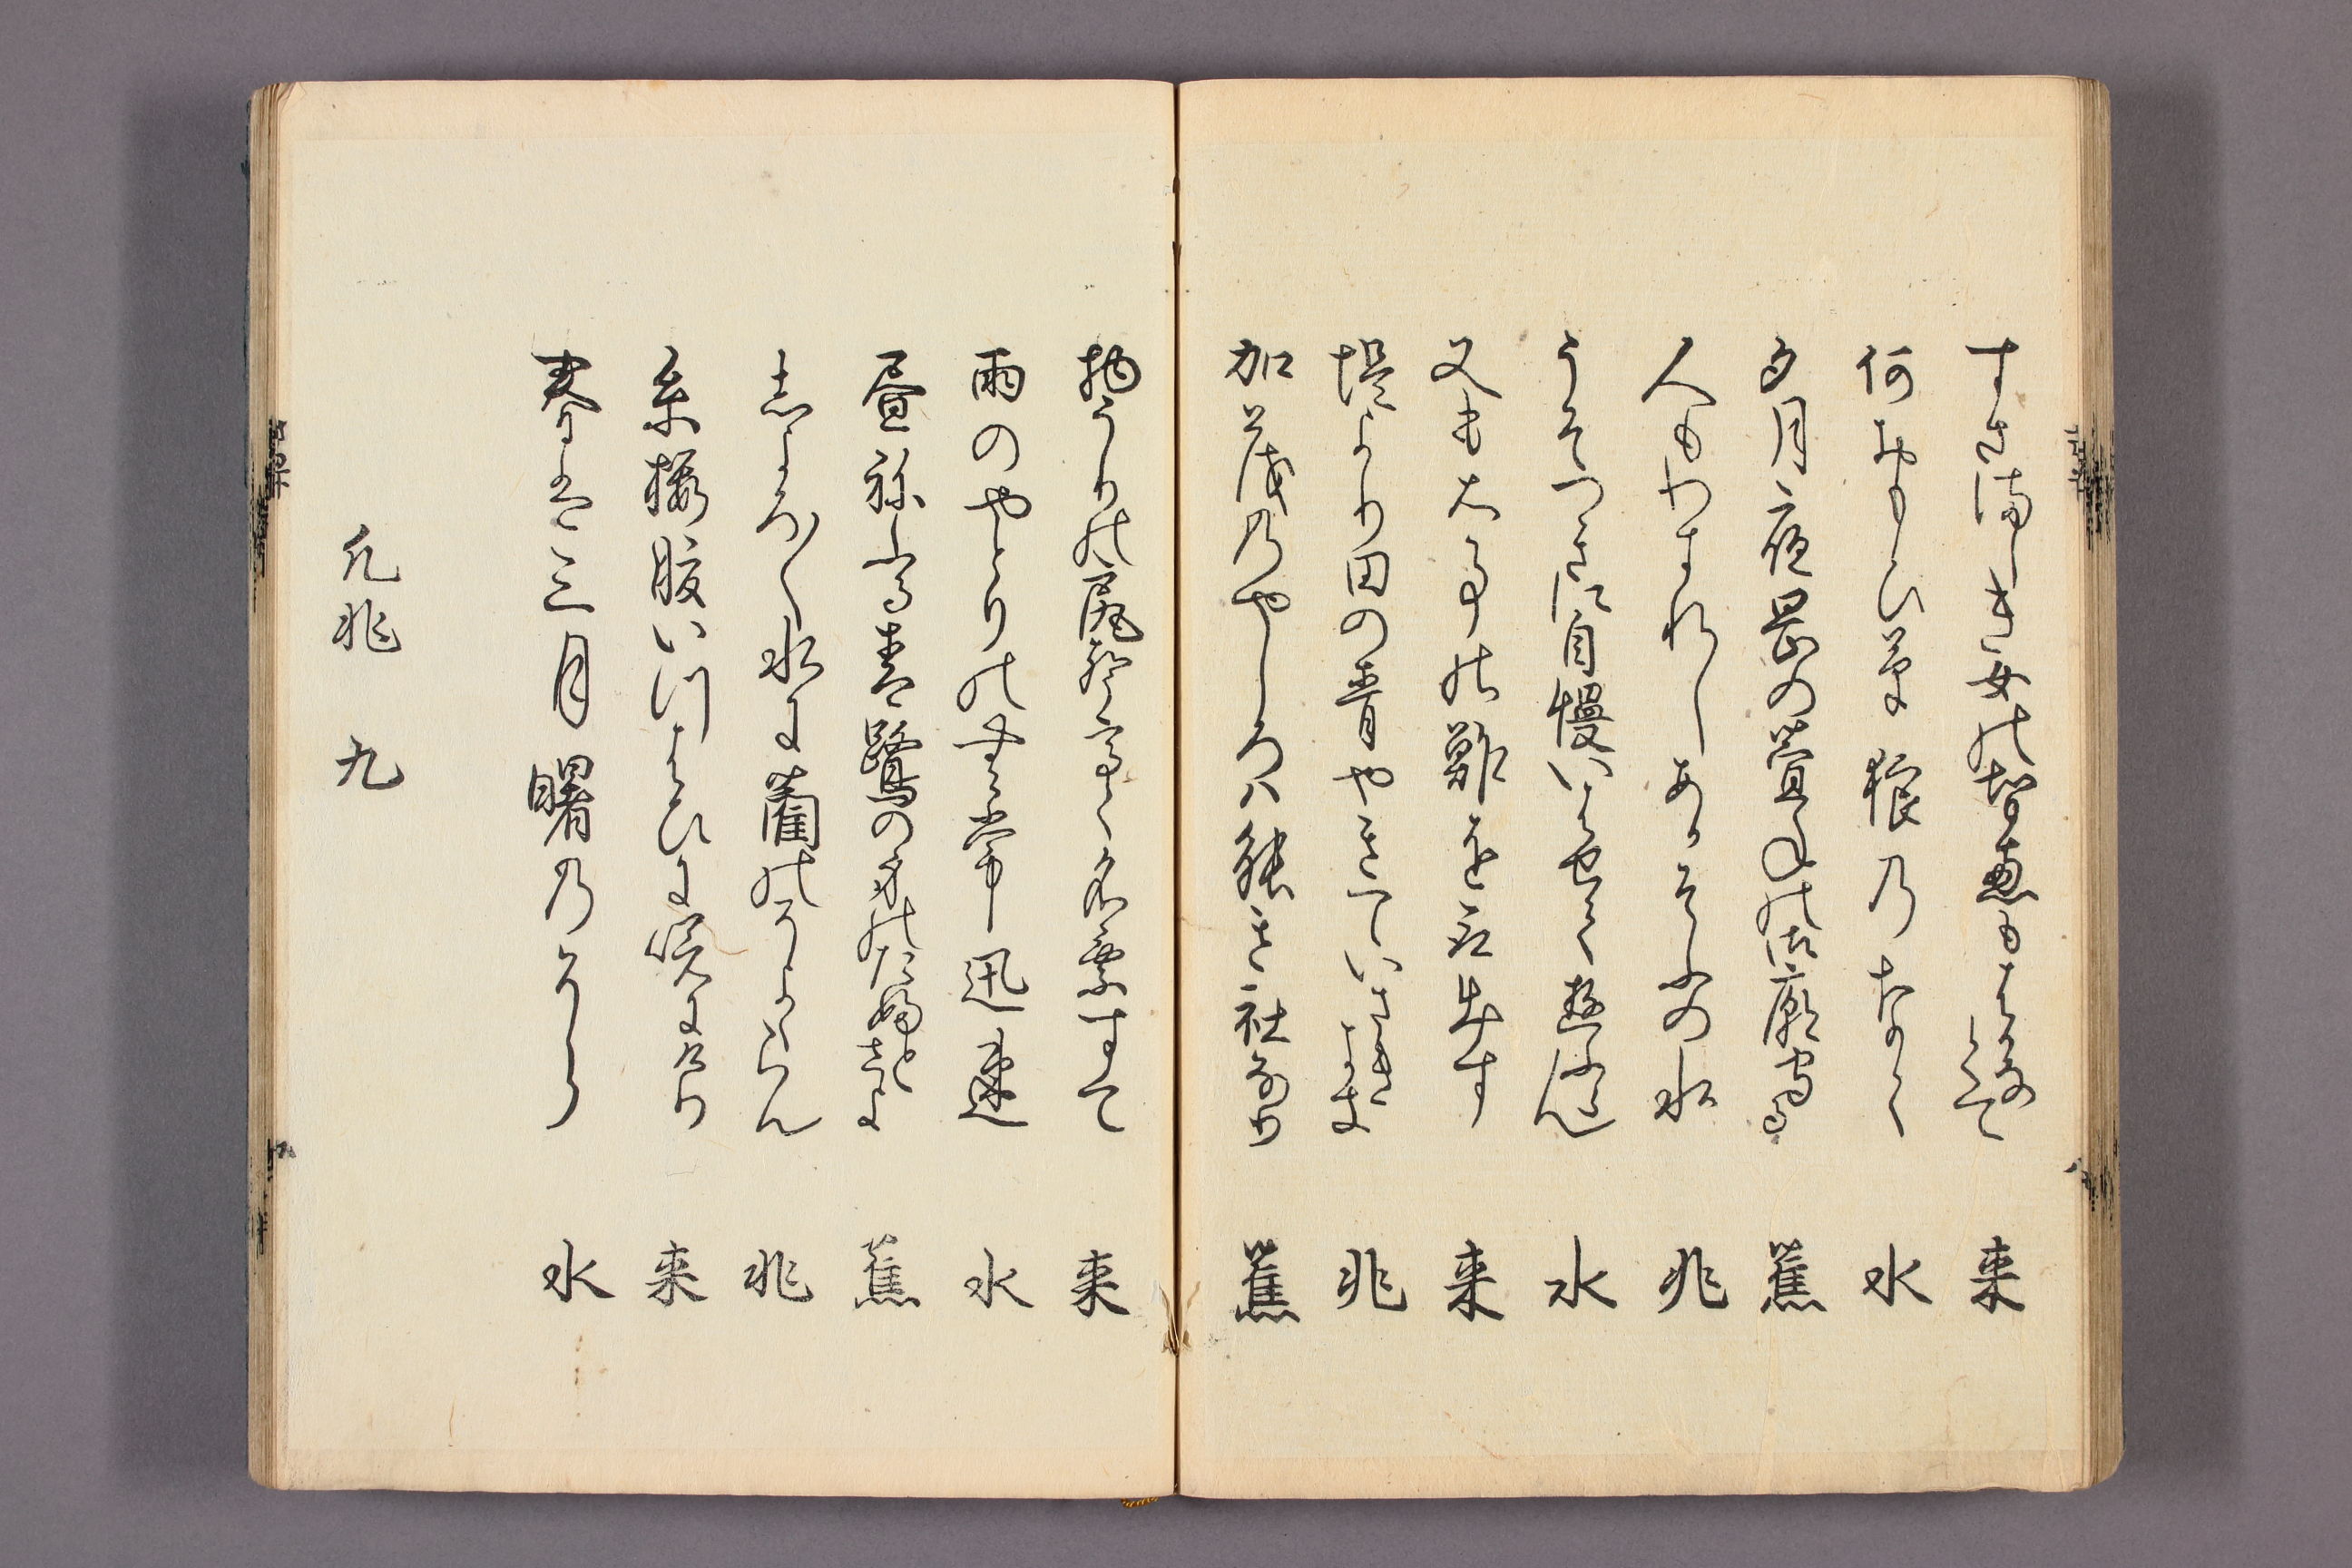 すさましき女の智恵もはかなくて 来
何おもひ草狼のなく 水
夕月夜岡の萱ねの御廟守る 蕉
人もわすれしあかそふの水 兆
うそつきに自慢いはせて遊ふらん 水
又も大事の鮓を取出す 来
堤より田の青やきていさきよき 兆
加茂のやしろハ能き社なり 蕉
物うりの尻声高く名乗すて 来
雨のやとりの無常迅速 水
昼ねふる青鷺の身のたふとさよ 蕉
志よろ〳〵水に藺のそよくらん 兆
糸桜腹いつはひに咲にけり 来
春は三月曙のそら 水
凡兆 九